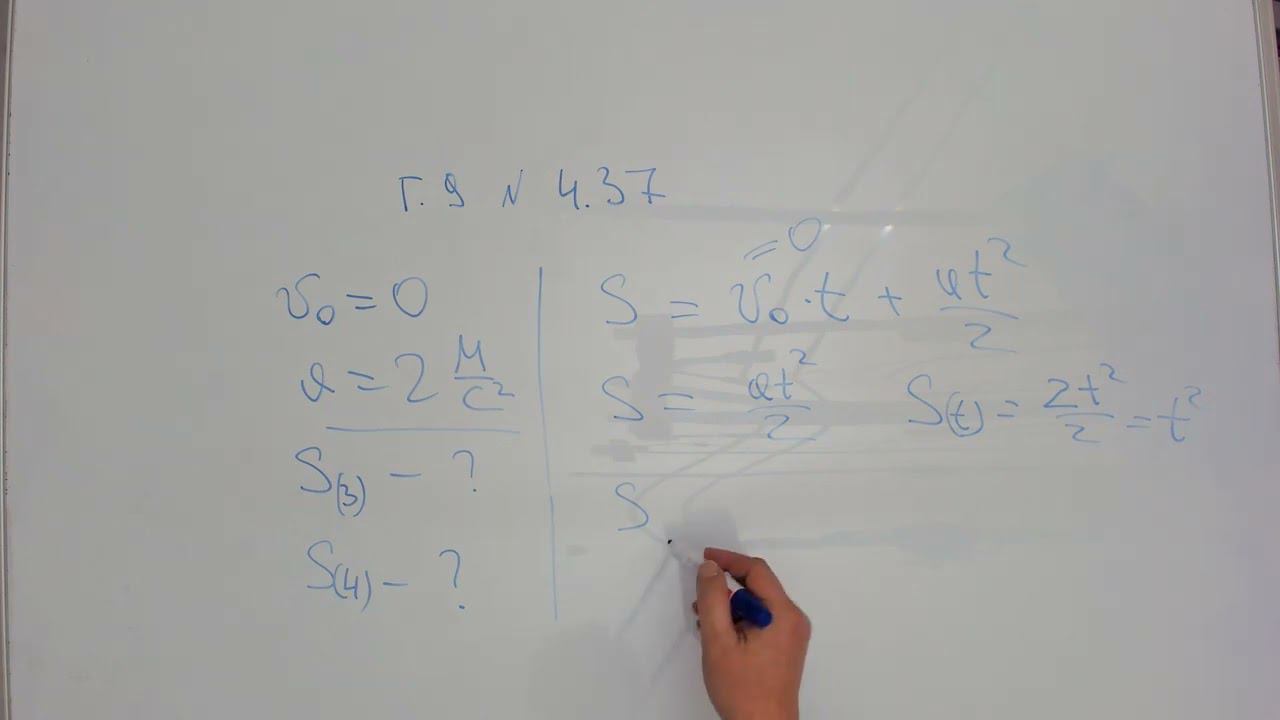 Г. 9 N 4.37
v₀ = 0
a = 2 м/с²
S(3) – ?
S(4) – ?
= 0
S = v₀ · t + at²/2
S = at²/2 S(t) = 2t²/2 = t²
S